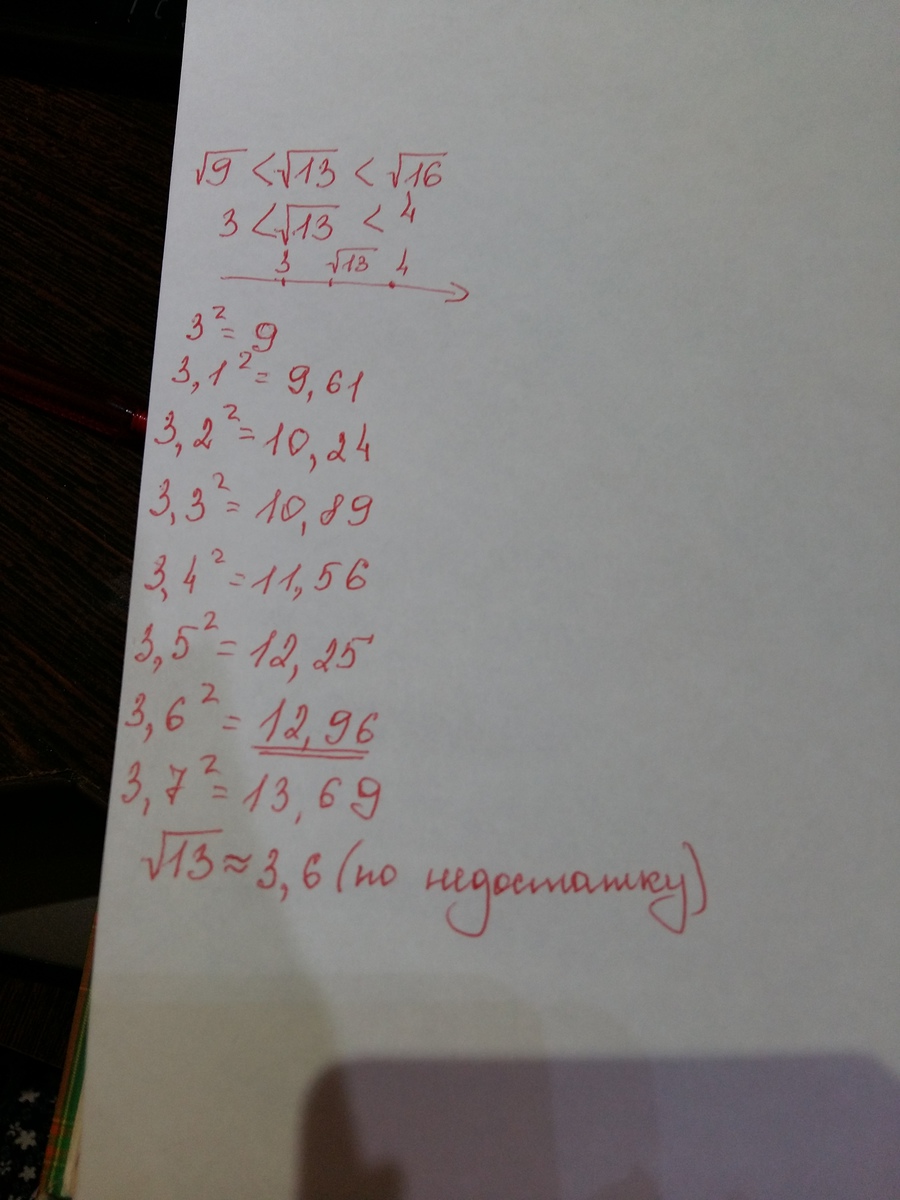 √9 < √13 < √16
3 < √13 < 4
3 √13 4
3² = 9
3,1² = 9,61
3,2² = 10,24
3,3² = 10,89
3,4² = 11,56
3,5² = 12,25
3,6² = 12,96
3,7² = 13,69
√13 ≈ 3,6 (по недостатку)